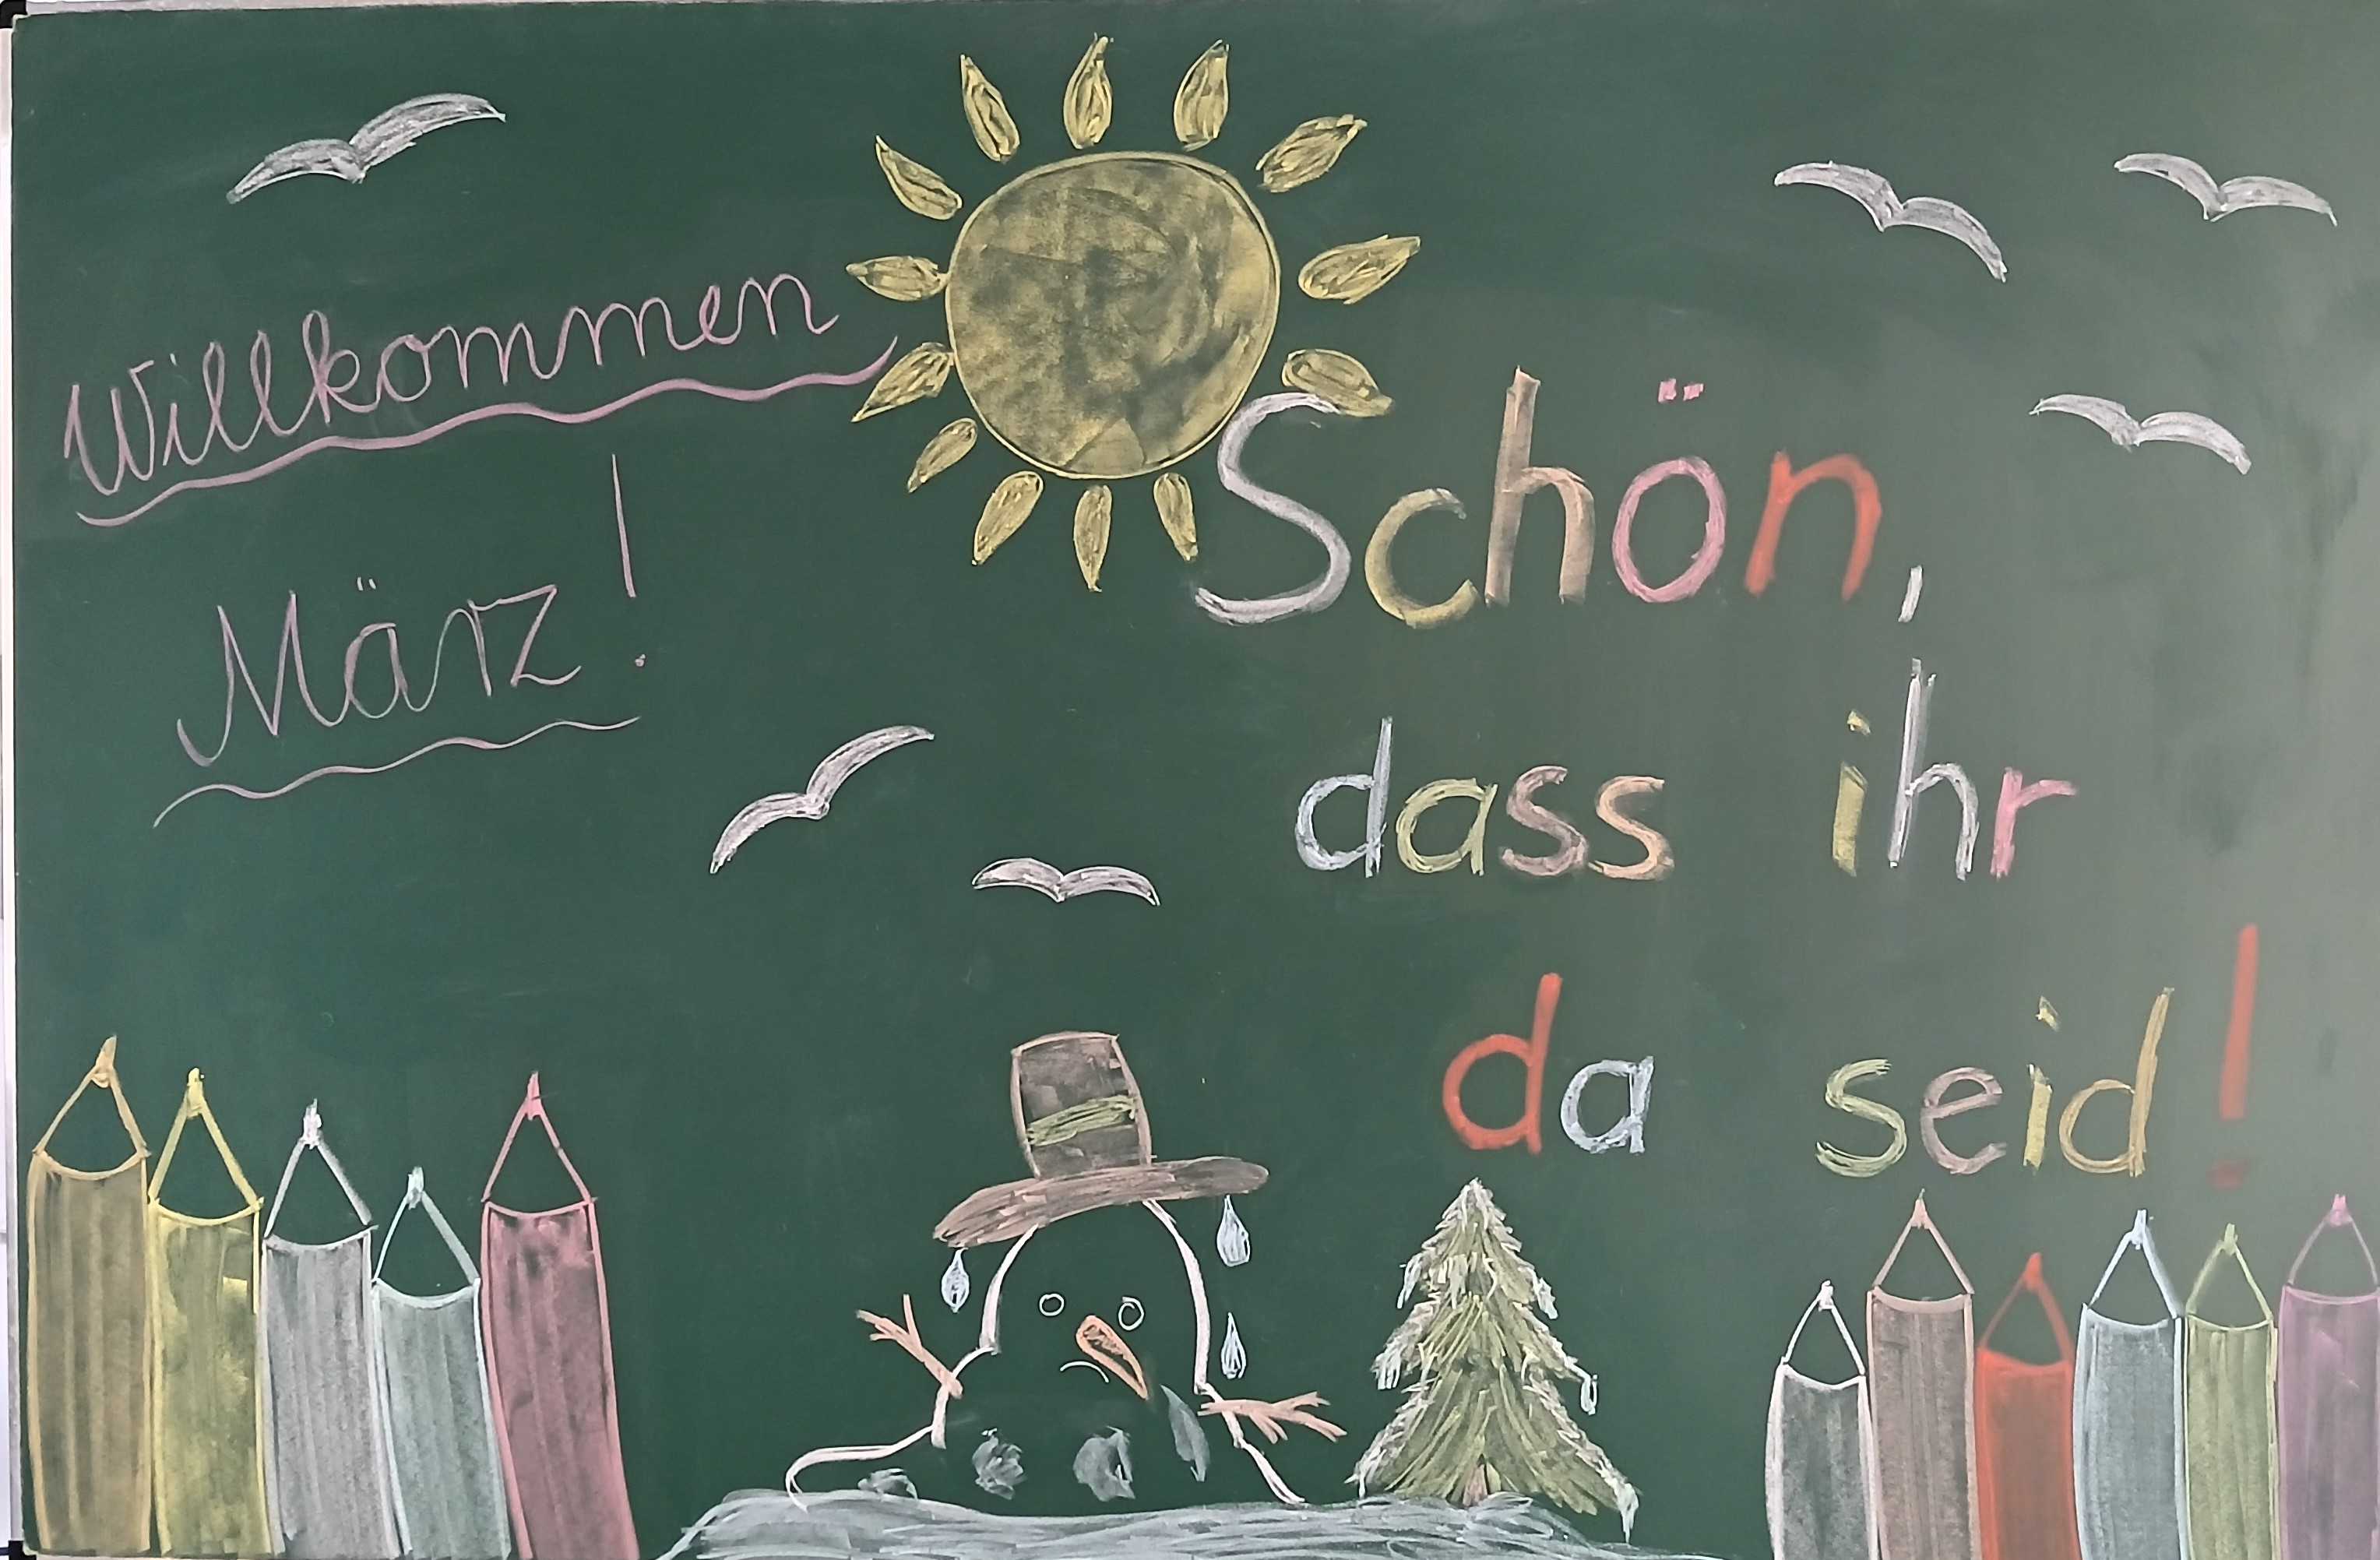 Willkommen
März!
Schön,
dass ihr
da seid!